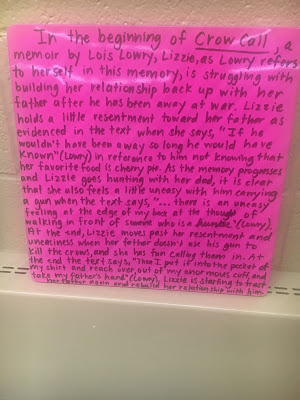 In the beginning of Crow Call, a
memoir by Lois Lowry, Lizzie, as Lowry refers
to herself in this memory, is struggling with
building her relationship back up with her
father after he has been away at war. Lizzie
holds a little resentment toward her father as
evidenced in the text when she says, "If he
wouldn't have been away so long he would have
known" (Lowry) in reference to him not knowing that
her favorite food is cherry pie. As the memory progresses
and Lizzie goes hunting with her dad, it is clear
that she also feels a little uneasy with him carrying
a gun when the text says, "... there is an uneasy
feeling at the edge of my box at the thought of
walking in front of someone who is a hunter" (Lowry).
At the end, Lizzie moves past her resentment and
uneasiness when her father doesn't use his gun to
kill the crows, and she has fun calling them in. At
the end the text says, "Then I put it into the pocket of
my shirt and reach over, out of my enormous cuff, and
take my father's hand" (Lowry). Lizzie is starting to trust
her father again and rebuild her relationship with him.